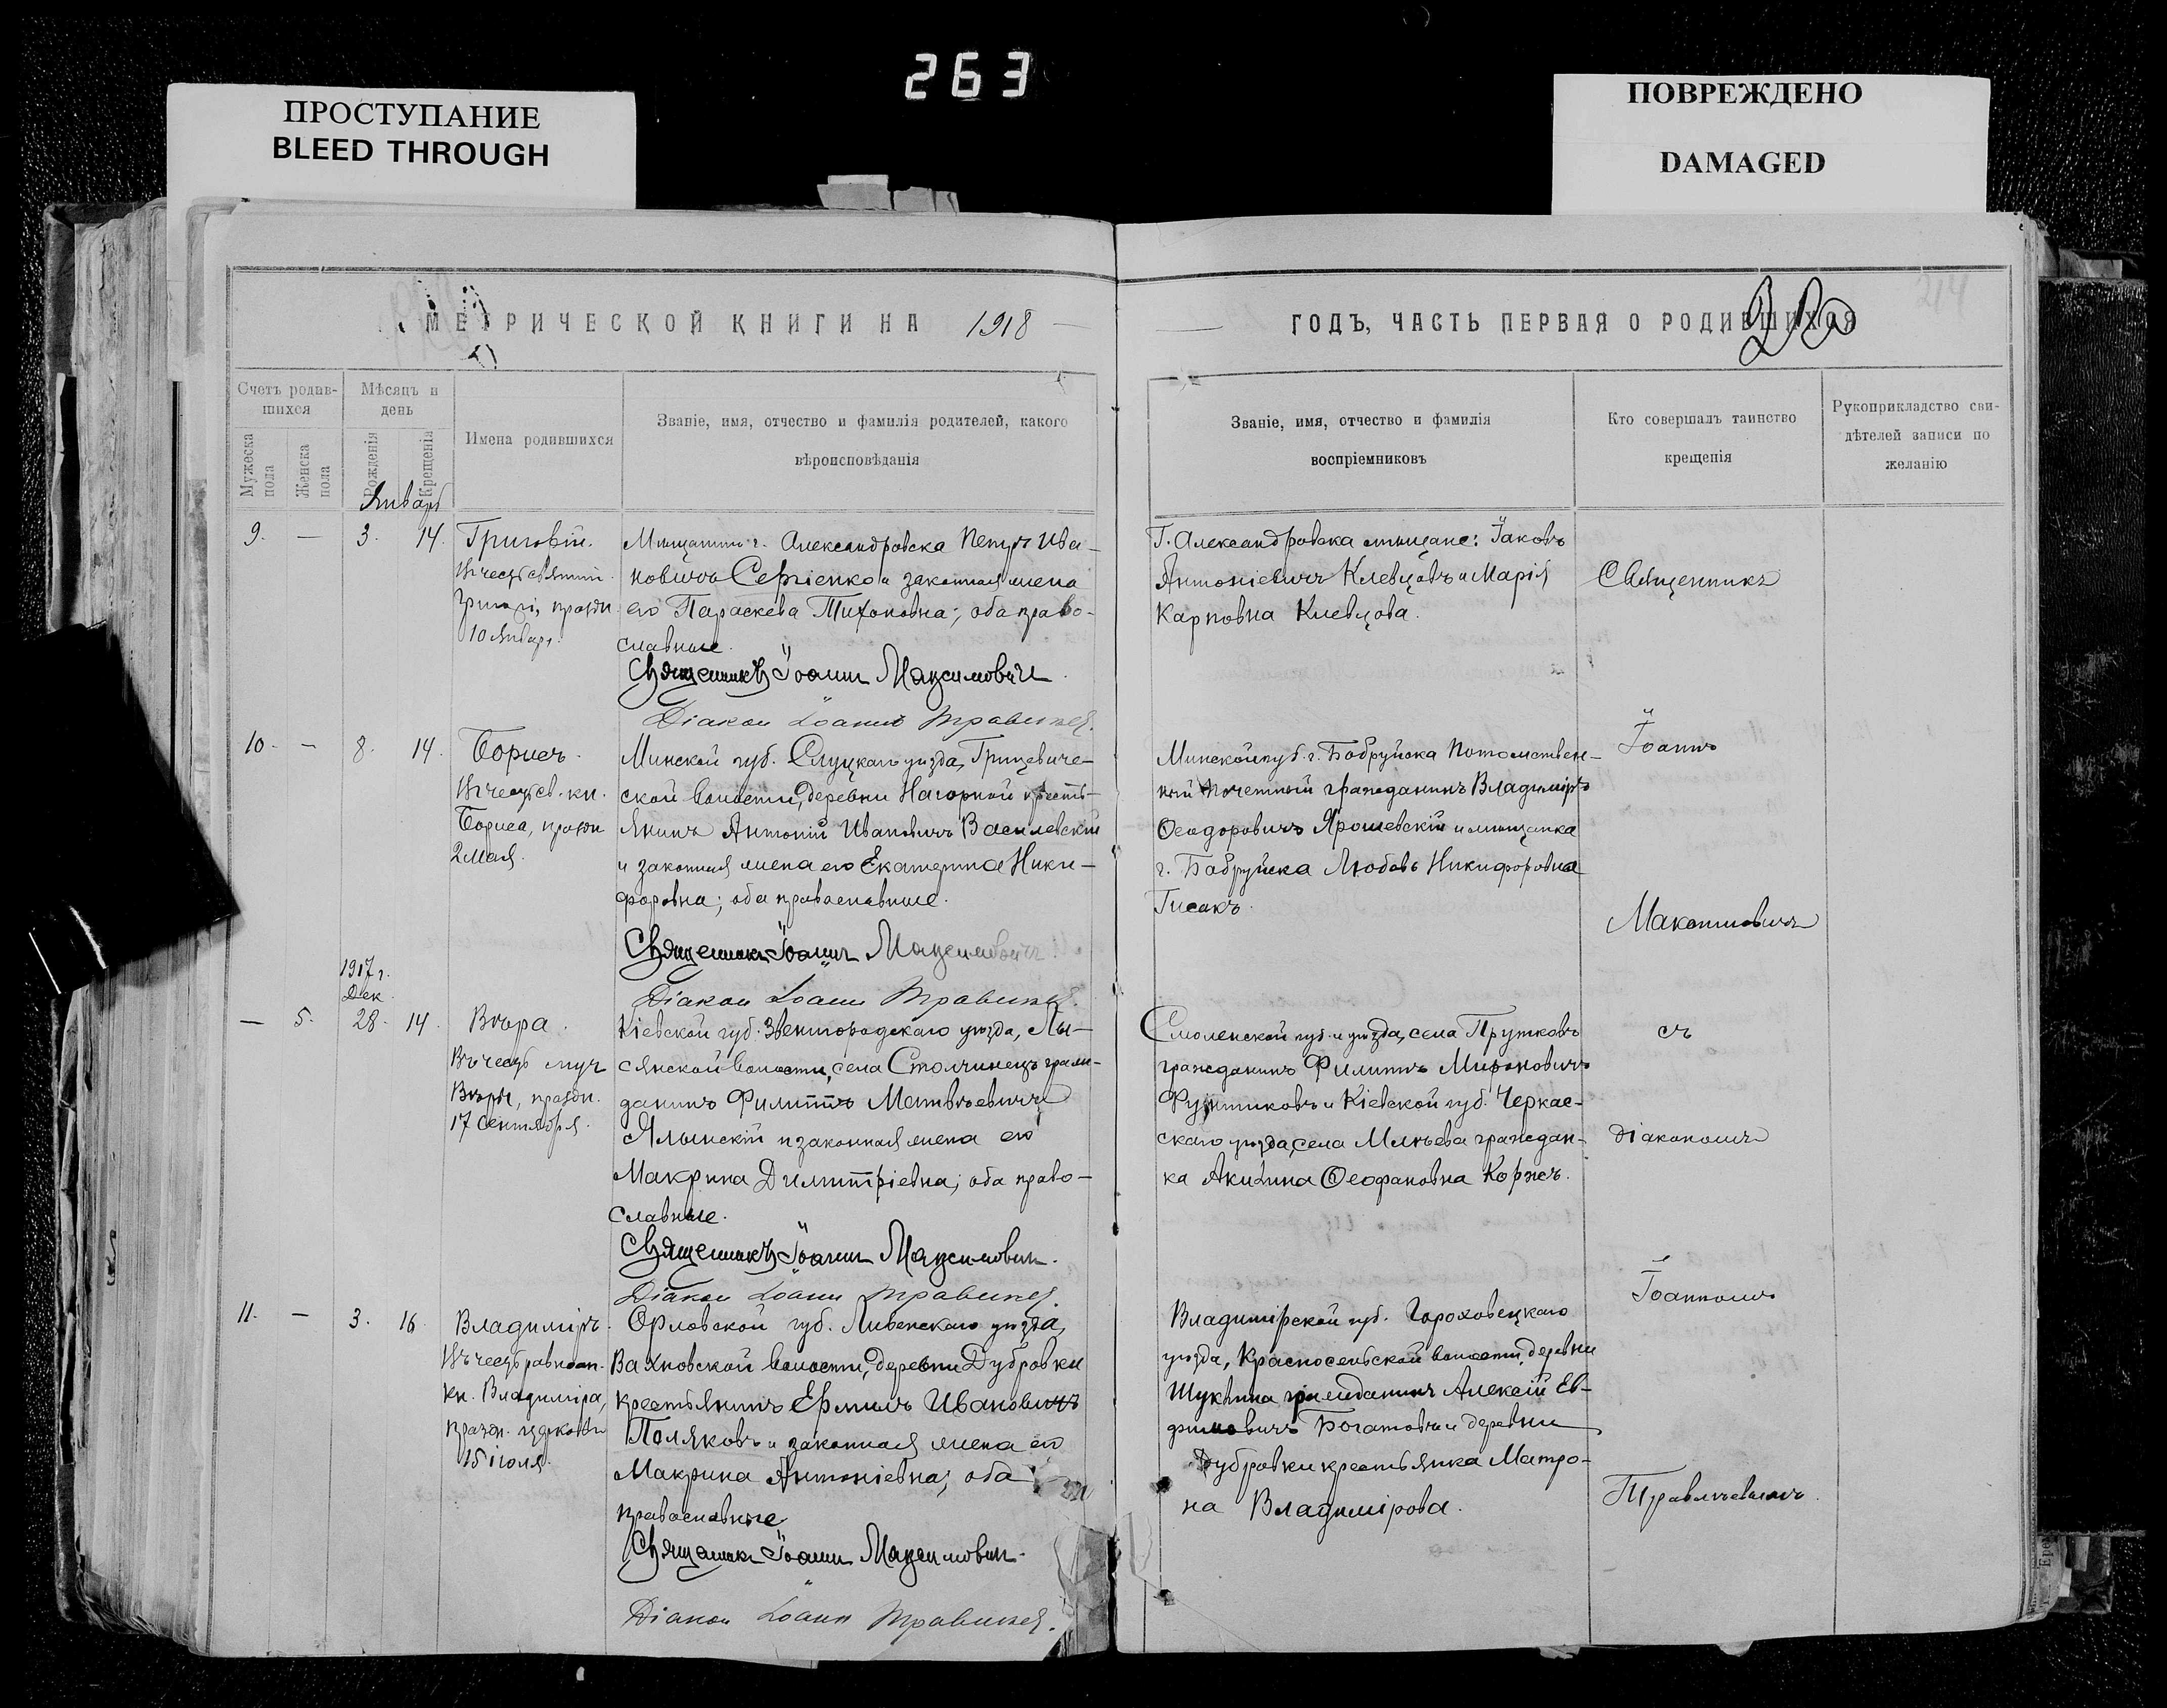 263
ПРОСТУПАНИЕ
BLEED THROUGH
ПОВРЕЖДЕНО
DAMAGED
МЕТРИЧЕСКОЙ КНИГИ НА 1918
ГОДЪ, ЧАСТЬ ПЕРВАЯ О РОДИВШИХСЯ
214
Счетъ родив-
шихся
Мужеска пола
Женска пола
Мѣсяцъ и
день
Рожденія
Крещенія
Имена родившихся
Званіе, имя, отчество и фамилія родителей, какого
вѣроисповѣданія
Званіе, имя, отчество и фамилія
воспріемниковъ
Кто совершалъ таинство
крещенія
Рукоприкладство сви-
дѣтелей записи по
желанію
Январь
9. — 3. 14.
Григорій.
Въ честь святит.
Григорія, праздн.
10 Января.
Мѣщанинъ г. Александровска Петръ Ива-
новичъ Сергіенко и законная жена
его Параскева Тихоновна; оба право-
славные.
Священникъ Іоаннъ Максимовичъ.
Діакон Іоаннъ Травинъ
Г. Александровска мѣщане: Іаковъ
Антоніевичъ Клевцовъ и Марія
Карповна Клевцова.
Священникъ
10. — 8. 14.
Борисъ.
Въ честь св. кн.
Бориса, праздн.
2 Мая.
Минской губ. Слуцкаго уѣзда, Грицевиче-
ской волости, деревни Нагорной кресть-
янинъ Антоній Ивановичъ Василевскій
и законная жена его Екатерина Ники-
форовна; оба православные.
Священникъ Іоаннъ Максимовичъ
Діакон Іоаннъ
Минской губ. г. Бобруйска Потомствен-
ный Почетный гражданинъ Владиміръ
Ѳеодоровичъ Ярошевскій и мѣщанка
г. Бобруйска Любовь Никифоровна
Гисакъ.
Іоаннъ
Максимовичъ
1917 г.
Дек.
— 5. 28. 14.
Вѣра.
Въ честь муч.
Вѣры, праздн.
17 Сентября.
Кіевской губ. Звенигородскаго уѣзда, Лы-
сянской волости, села Столчинецъ граж-
данинъ Филиппъ Матвѣевичъ
Ялынскій и законная жена его
Макрина Димитріевна; оба право-
славные.
Священникъ Іоаннъ Максимовичъ.
Діакон Іоаннъ
Смоленской губ. и уѣзда, села Прутковъ
гражданинъ Филиппъ Мироновичъ
Фунтиковъ и Кіевской губ. Черкас-
скаго уѣзда, села Млѣева граждан-
ка Акилина Ѳеофановна Коржъ.
съ
діакономъ
11. — 3. 16.
Владиміръ.
Въ честь равноап.
кн. Владиміра,
празд. церковью
15 іюля.
Орловской губ. Ливенскаго уѣзда,
Вахновской волости, деревни Дубровки
крестьянинъ Ермилъ Ивановичъ
Поляковъ и законная жена его
Макрина Антоніевна; оба
православные
Священникъ Іоаннъ Максимовичъ.
Діакон Іоаннъ
Владимірской губ. Гороховецкаго
уѣзда, Красносельской волости, деревни
Шукѣина гражданинъ Алексій Ев-
фимовичъ Богатовъ и деревни
Дубровки крестьянка Матро-
на Владимірова.
Іоанномъ
Травлѣевымъ.